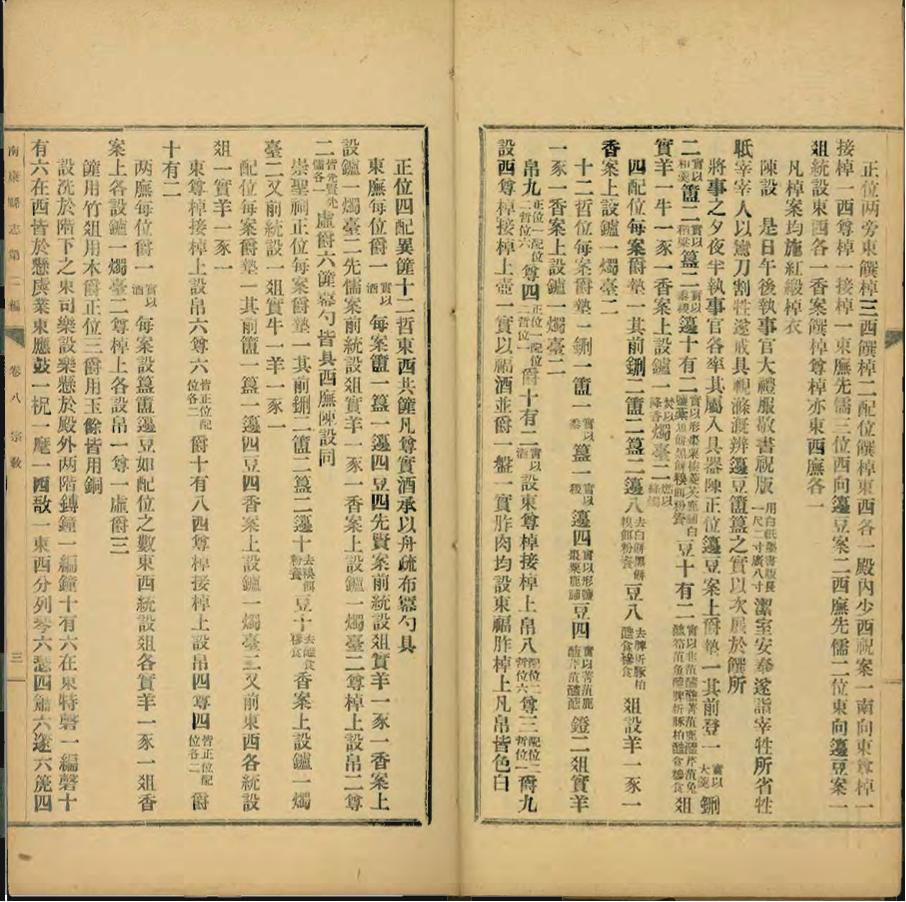 正位两旁東饌棹三西饌棹二配位饌棹東西各一殿內少西祝案一南向東尊棹一
接棹一西尊棹一接棹一東廡先儒三位西向籩豆案二西廡先儒二位東向籩豆案一
俎統設東西各一香案饌棹尊棹亦東西廡各一
凡棹案均施紅緞棹衣
陳設 是日午後執事官大禮服敬書祝版用白紙墨書版長一尺二寸廣八寸潔室安奉遂詣宰牲所省牲
眡宰宰人以鸞刀割牲遂戒具視滌溉辨籩豆簠簋之實以次展於饌所
將事之夕夜半執事官各率其屬入具器陳正位籩豆案上爵墊一其前登一實以大羹鉶
二實以和羹簠二實以稻粱簋二實以黍稷籩十有二豆十有二俎
實羊一牛一豕一香案上設鑪一燭臺二
四配位每案爵墊一其前鉶二簠二簋二籩八去白餅黑餅糗餌粉餈豆八去脾析豚拍酏食糝食俎設羊一豕一
香案上設鑪一燭臺二
十二哲位每案爵墊一鉶一簠一實以黍簋一實以稷籩四實以形鹽棗栗鹿脯豆四實以菁菹鹿醢芹菹醓醢鐙二俎實羊
一豕一香案上設鑪一燭臺二
帛九正位一配位二哲位六尊四正位一配位二哲位一爵十有二實以酒設東尊棹接棹上帛八配位二哲位六尊三配位二哲位一爵九
設西尊棹接棹上壺一實以福酒並爵一盤一實胙肉均設東福胙棹上凡帛皆色白
正位四配異篚十二哲東西共篚凡尊實酒承以舟疏布冪勺具
東廡每位爵一實以酒每案簠一簋一籩四豆四先賢案前統設俎實羊一豕一香案上
設鑪一燭臺二先儒案前統設俎實羊一豕一香案上設鑪一燭臺二尊棹上設帛二尊
二皆先賢先儒各一虛爵六篚冪勺皆具西廡陳設同
崇聖祠正位每案爵墊一其前鉶二簠二簋二籩十去糗餌粉餈豆十去酏食糝食香案上設鑪一燭
臺二又前統設一俎實牛一羊一豕一
配位每案爵墊一其前簠一簋一籩四豆四香案上設鑪一燭臺二又前東西各統設
俎一實羊一豕一
東尊棹接棹上設帛六尊六皆正位配位各二爵十有八四尊棹接棹上設帛四尊四皆正位配位各二爵
十有二
两廡每位爵一實以酒每案設簋簠籩豆如配位之數東西統設俎各實羊一豕一俎香
案上各設鑪一燭臺二尊棹上各設帛一尊一虛爵三
篚用竹俎用木爵正位三爵用玉餘皆用銅
設洗於階下之東司樂設樂懸於殿外两階鎛鐘一編鐘十有六在東特磬一編磬十
有六在西皆於懸虡業東應鼓一柷一麾一西敔一東西分列琴六瑟四簫六篴六篪四
南康縣志第一編 卷八 宗教 三